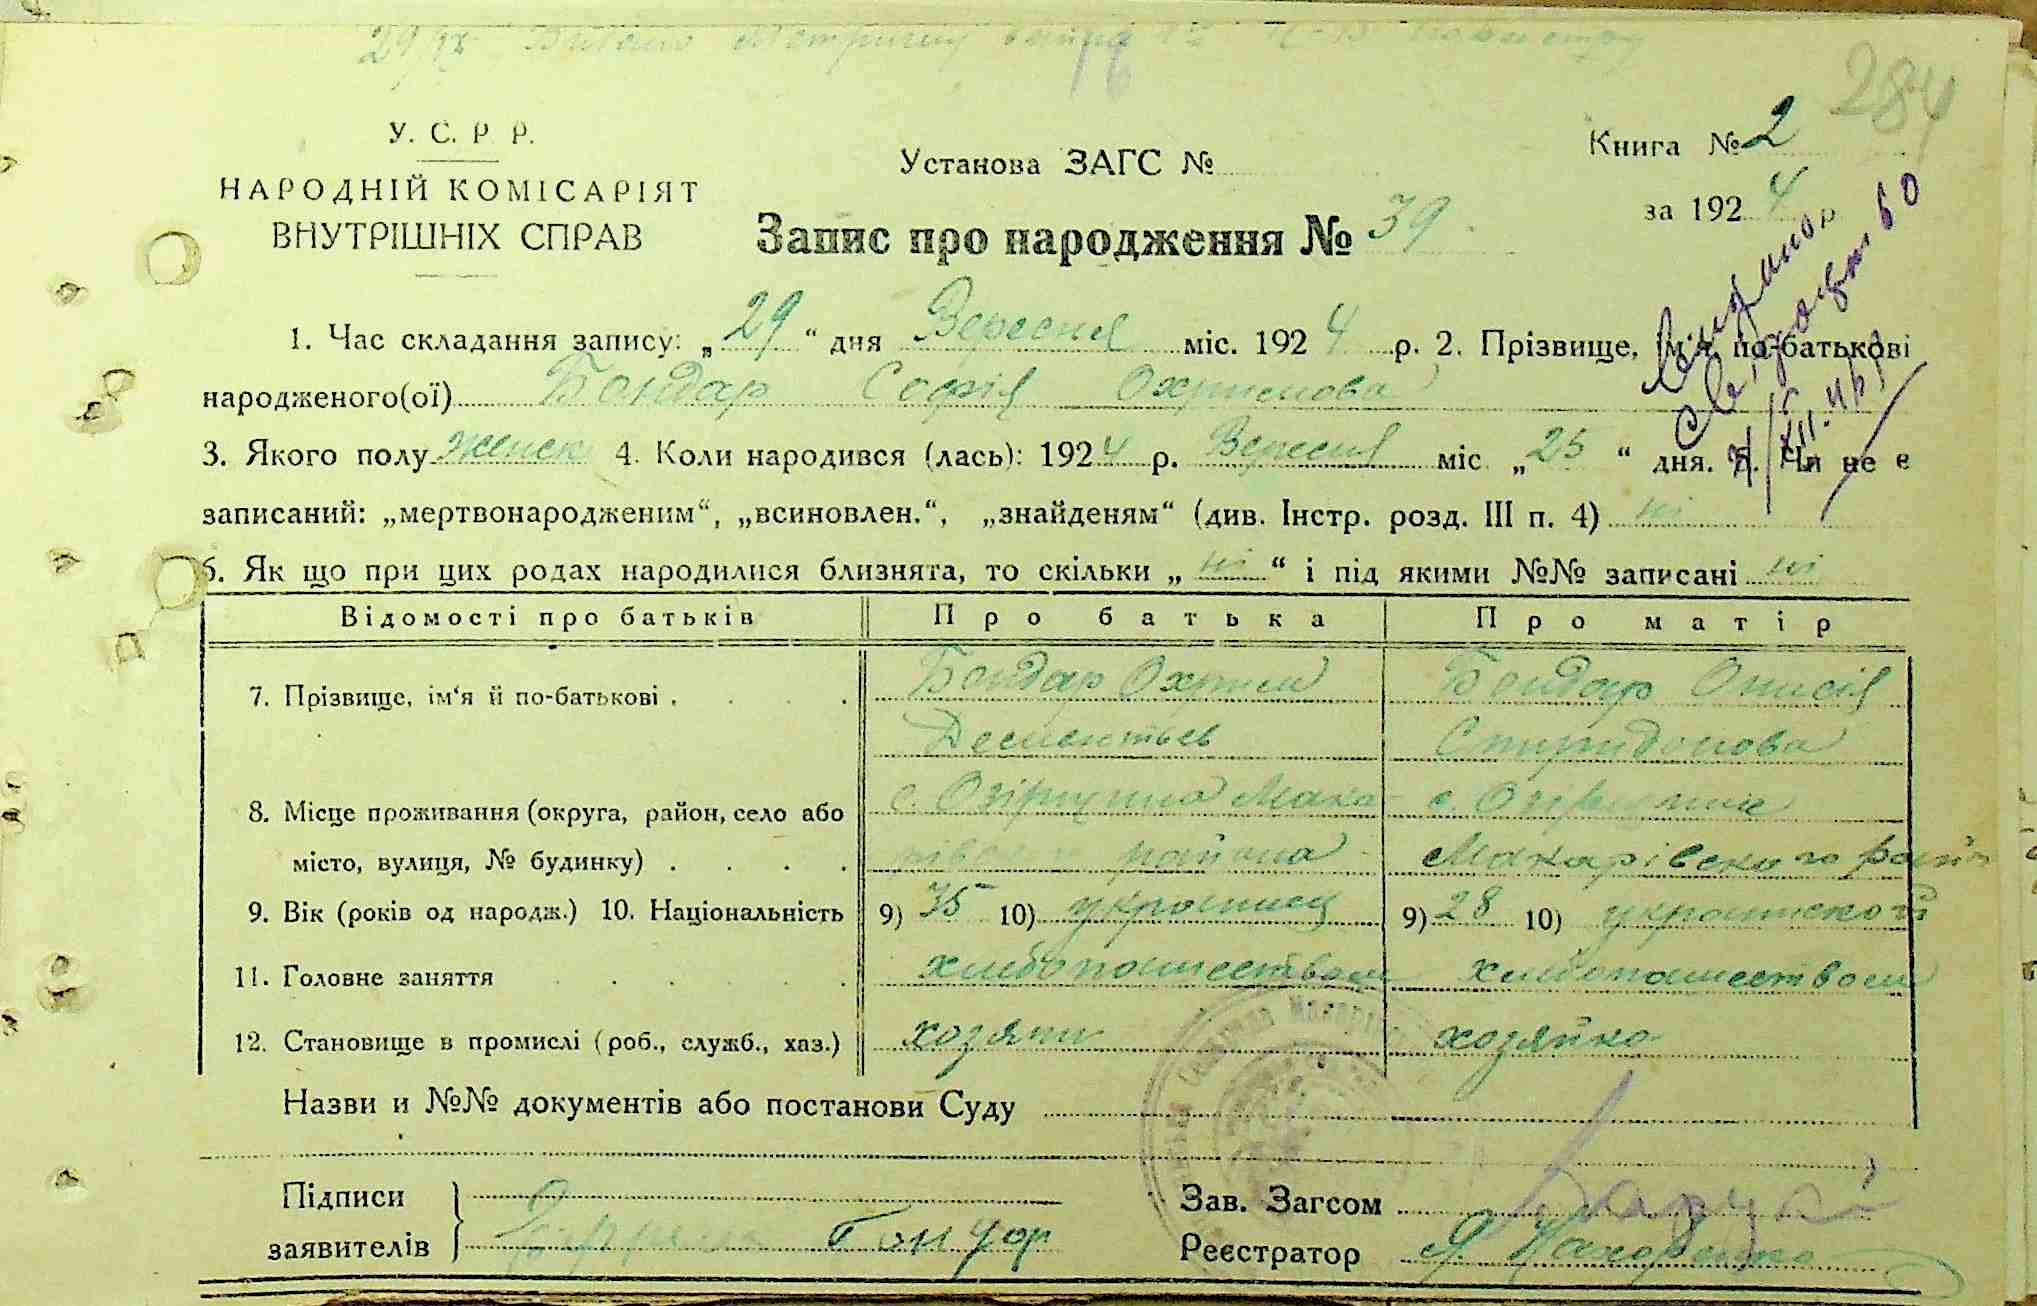 284
У. С. Р. Р.
НАРОДНІЙ КОМІСАРІЯТ
ВНУТРІШНІХ СПРАВ
Установа ЗАГС №
Книга № 2
за 1924 р.
Запис про народження № 39
1. Час складання запису: „29“ дня Вересня міс. 1924 р. 2. Прізвище, ім'я по-батькові
народженого(ої) Бондар Софія Охримова
3. Якого полу женск 4. Коли народився (лась): 1924 р. Вересня міс „25“ дня. 5. Чи не є
записаний: „мертвонародженим“, „всиновлен.“, „знайденям“ (див. Інстр. розд. III п. 4) ні
6. Як що при цих родах народилися близнята, то скільки „ні“ і під якими №№ записані ні
Відомості про батьків Про батька Про матір
7. Прізвище, ім'я й по-батькові . Бондар Охрим Бондар Онисія
Дементьев Спиридонова
8. Місце проживання (округа, район, село або с. Озірщина Мака- с. Озірщина
місто, вулиця, № будинку) района Макарівского район
9. Вік (років од народж.) 10. Національність 9) 35 10) украинец 9) 28 10)
11. Головне заняття хлібопашеством хлібопашеством
12. Становище в промислі (роб., служб., хаз.) хозяин хозяйка
Назви и №№ документів або постанови Суду
Підписи
заявителів Бондар
Зав. Загсом
Реєстратор